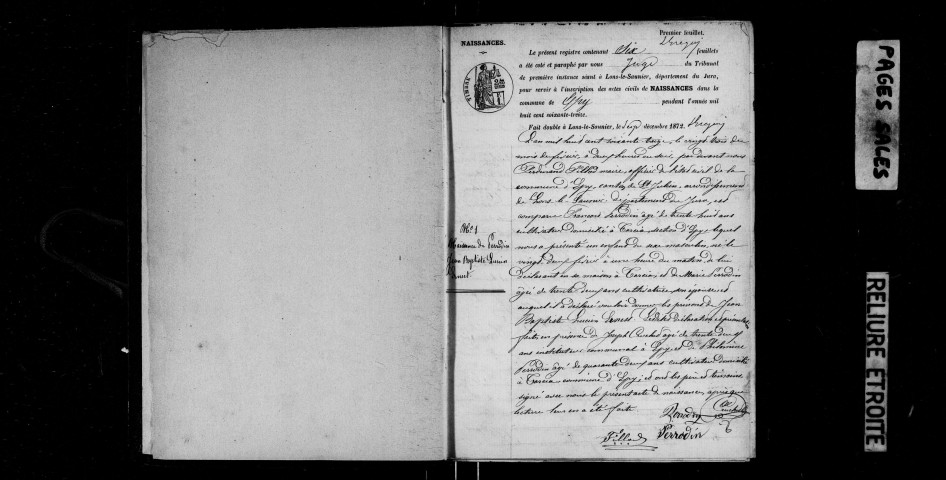 Premier feuillet.
NAISSANCES.
Le présent registre contenant Six feuillets
a été coté et paraphé par nous Juge du Tribunal
de première instance séant à Lons-le-Saunier, département du Jura,
pour servir à l'inscription des actes civils de NAISSANCES dans la
commune de Epy pendant l'année mil
huit cent soixante-treize.
Fait double à Lons-le-Saunier, le décembre 1872.
TIMBRE
L'an mil huit cent soixante treize, le vingt trois du
mois de février, à deux heures du soir, par devant nous
Ferdinand Fillod maire, officier de l'état civil de la
commune d'Epy, canton de St Julien, arrondissement
de Lons-le-Saunier Département du Jura, est
comparu François Perrodin âgé de trente huit ans
cultivateur domicilié à Tarcia section d'Epy, lequel
nous a présenté un enfant du sexe masculin, né le
vingt deux février à onze heures du matin, de lui
déclarant en sa maison à Tarcia, et de Marie Perrodin
âgée de trente deux ans cultivatrice, son épouse, et
auquel il a déclaré vouloir donner les prénoms de Jean
Baptiste Lucien Ernest. Lesdites déclaration et présentation
faites en présence de Joseph âgé de trente deux
ans instituteur communal à Epy, et de Philomène
Perrodin âgé de quarante deux ans cultivateur domicilié
à Tarcia commune d'Epy; et ont les père et témoins
signé avec nous le présent acte de naissance, après que
lecture leur en a été faite.
No 1
Naissance de Perrodin
Jean Baptiste Lucien
Ernest
Perrodin
Fillod Perrodin
PAGES SALES
RELIURE ETROITE